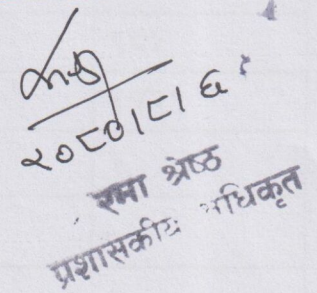 २०८०।८।६
रमा श्रेष्ठ
प्रशासकीय अधिकृत